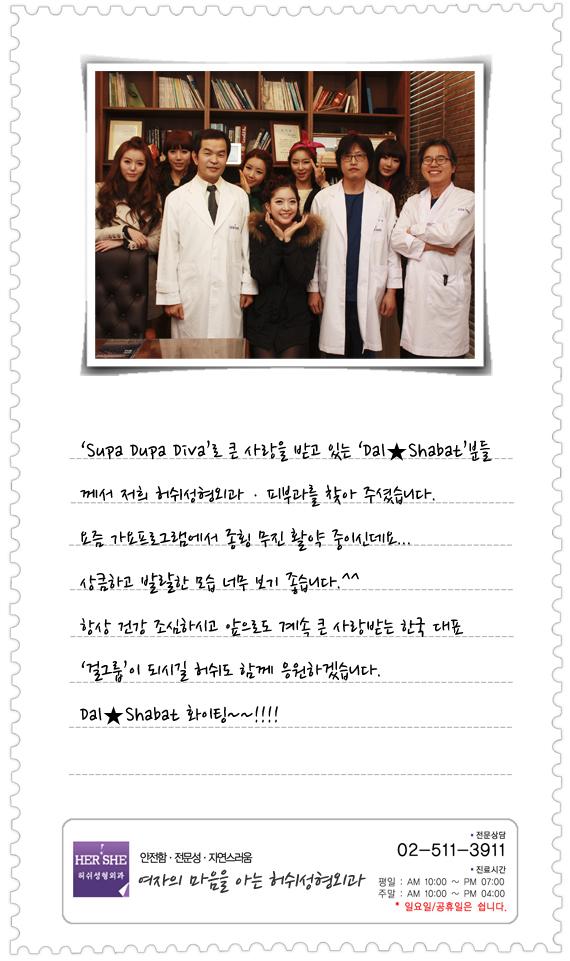 ‘Supa Dupa Diva’로 큰 사랑을 받고 있는 ‘Dal★Shabat’분들
께서 저희 허쉬성형외과 · 피부과를 찾아 주셨습니다.
요즘 가요프로그램에서 종횡 무진 활약 중이신데요...
상큼하고 발랄한 모습 너무 보기 좋습니다.^^
항상 건강 조심하시고 앞으로도 계속 큰 사랑받는 한국 대표
‘걸그룹’이 되시길 허쉬도 함께 응원하겠습니다.
Dal★Shabat 화이팅~~!!!!
HER SHE
허쉬성형외과
안전함 · 전문성 · 자연스러움
여자의 마음을 아는 허쉬성형외과
전문상담
02-511-3911
진료시간
평일 : AM 10:00 ~ PM 07:00
주말 : AM 10:00 ~ PM 04:00
* 일요일/공휴일은 쉽니다.